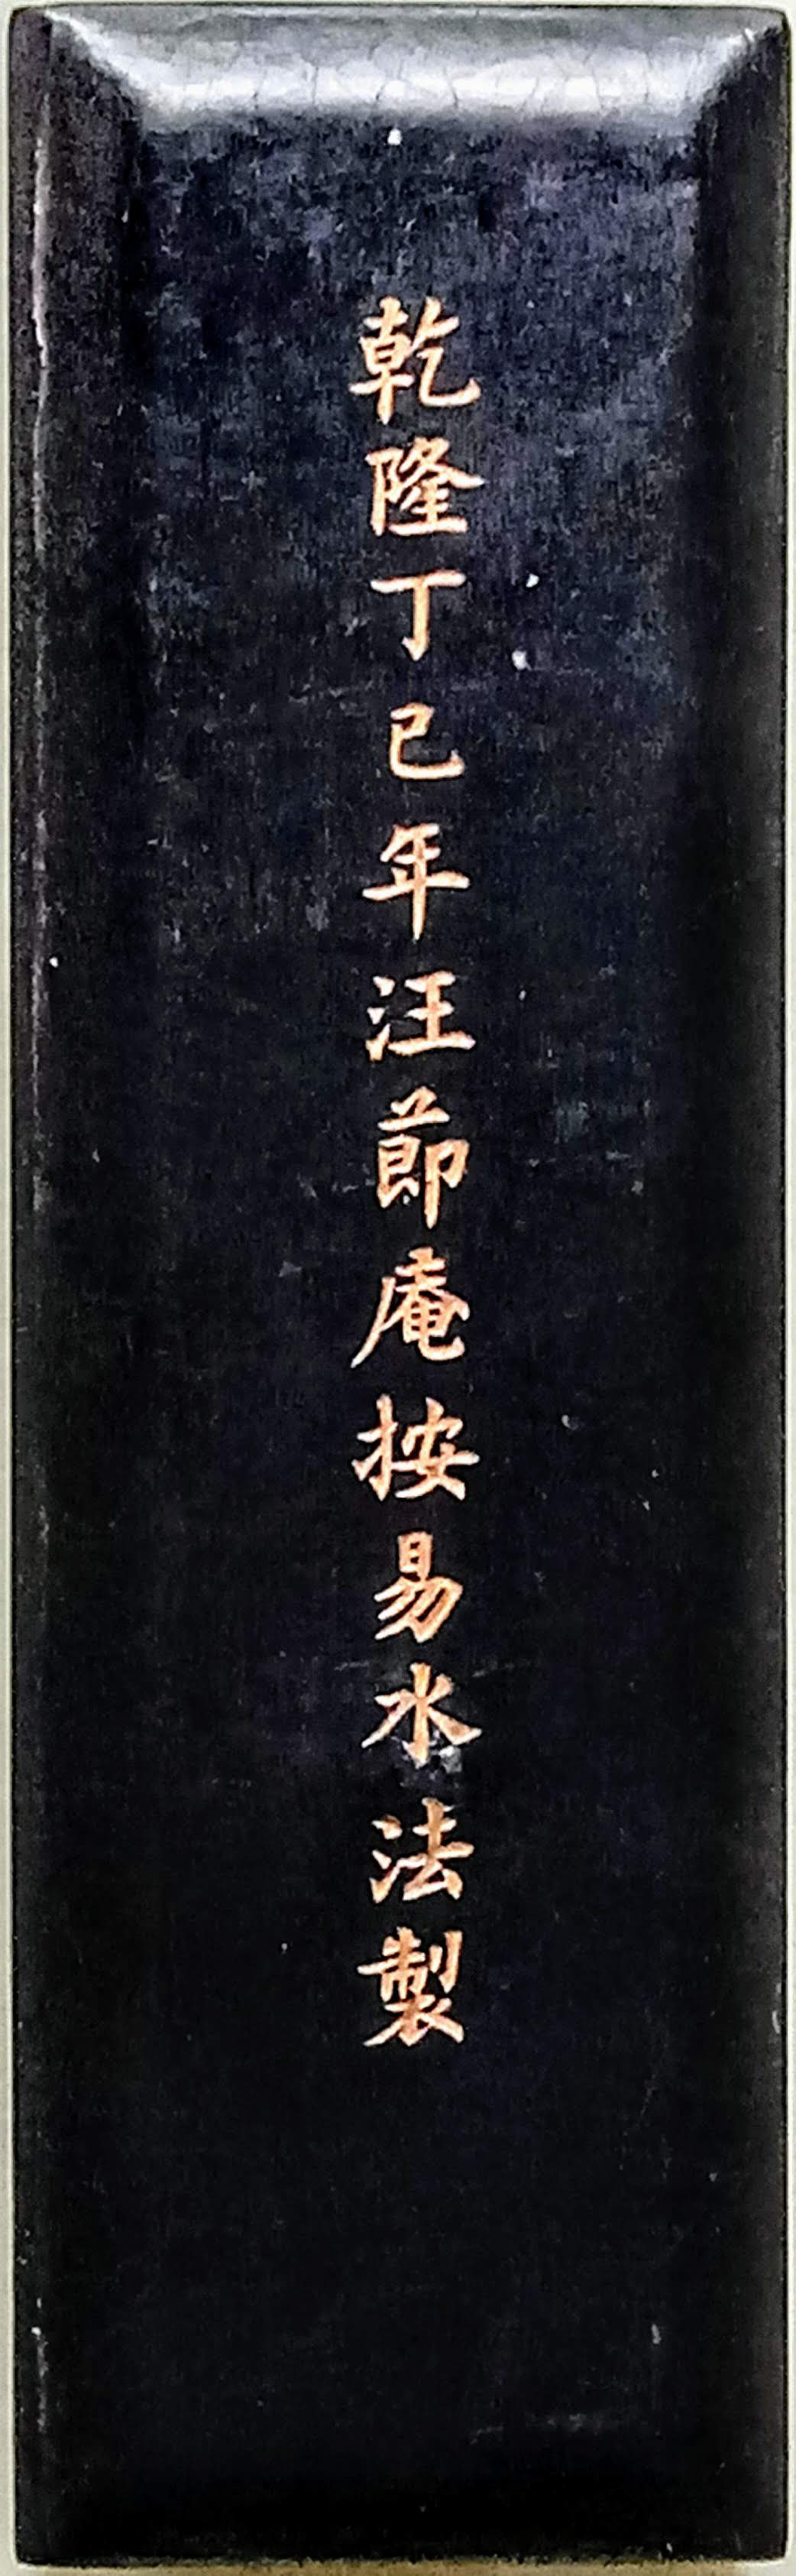 乾隆丁巳年汪節庵按易水法製